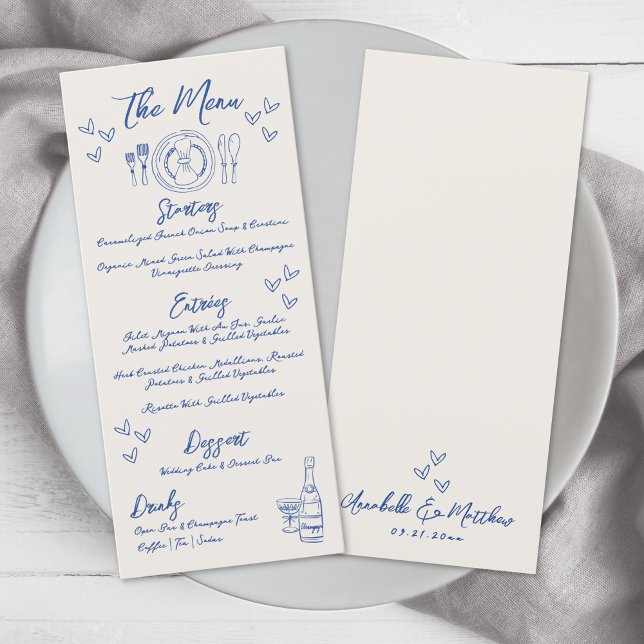 The Menu
Starters
Caramelized French Onion Soup & Crostini
Organic Mixed Green Salad With Champagne
Vinnaigrette Dressing
Entrées
Filet Mignon With Au Jus, Garlic
Mashed Potatoes & Grilled Vegetables
Herb Crusted Chicken Medallions, Roasted
Potatoes & Grilled Vegetables
Risotto With Grilled Vegetables
Dessert
Wedding Cake & Dessert Bar
Drinks
Open Bar & Champagne Toast
Coffee | Tea | Sodas
Annabelle & Matthew
09.21.20xx